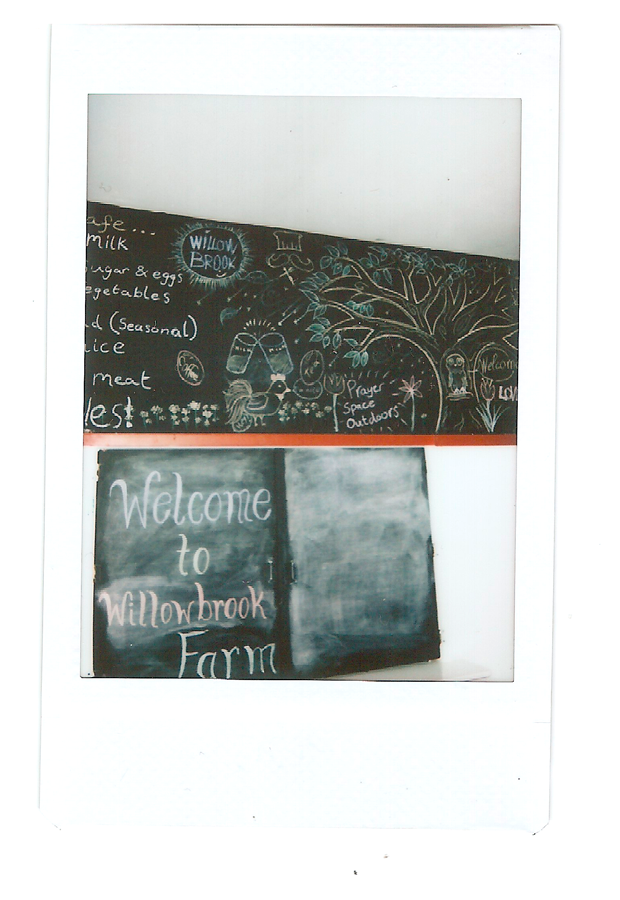 afe...
milk
ugar & eggs
egetables
d (Seasonal)
ice
meat
les!
WILLOW
BROOK
Prayer
Space
Outdoors
Welcome
LOV
Welcome
to
Willowbrook
Farm